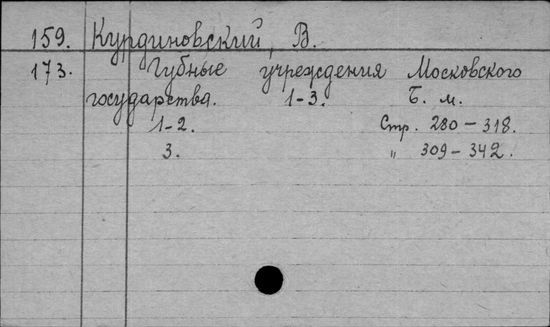 159. Курдиновский, В.
173. Губные учреждения Московского
государства. 1-3. Б. м.
1-2. Стр. 280-318.
3. " 309-342.